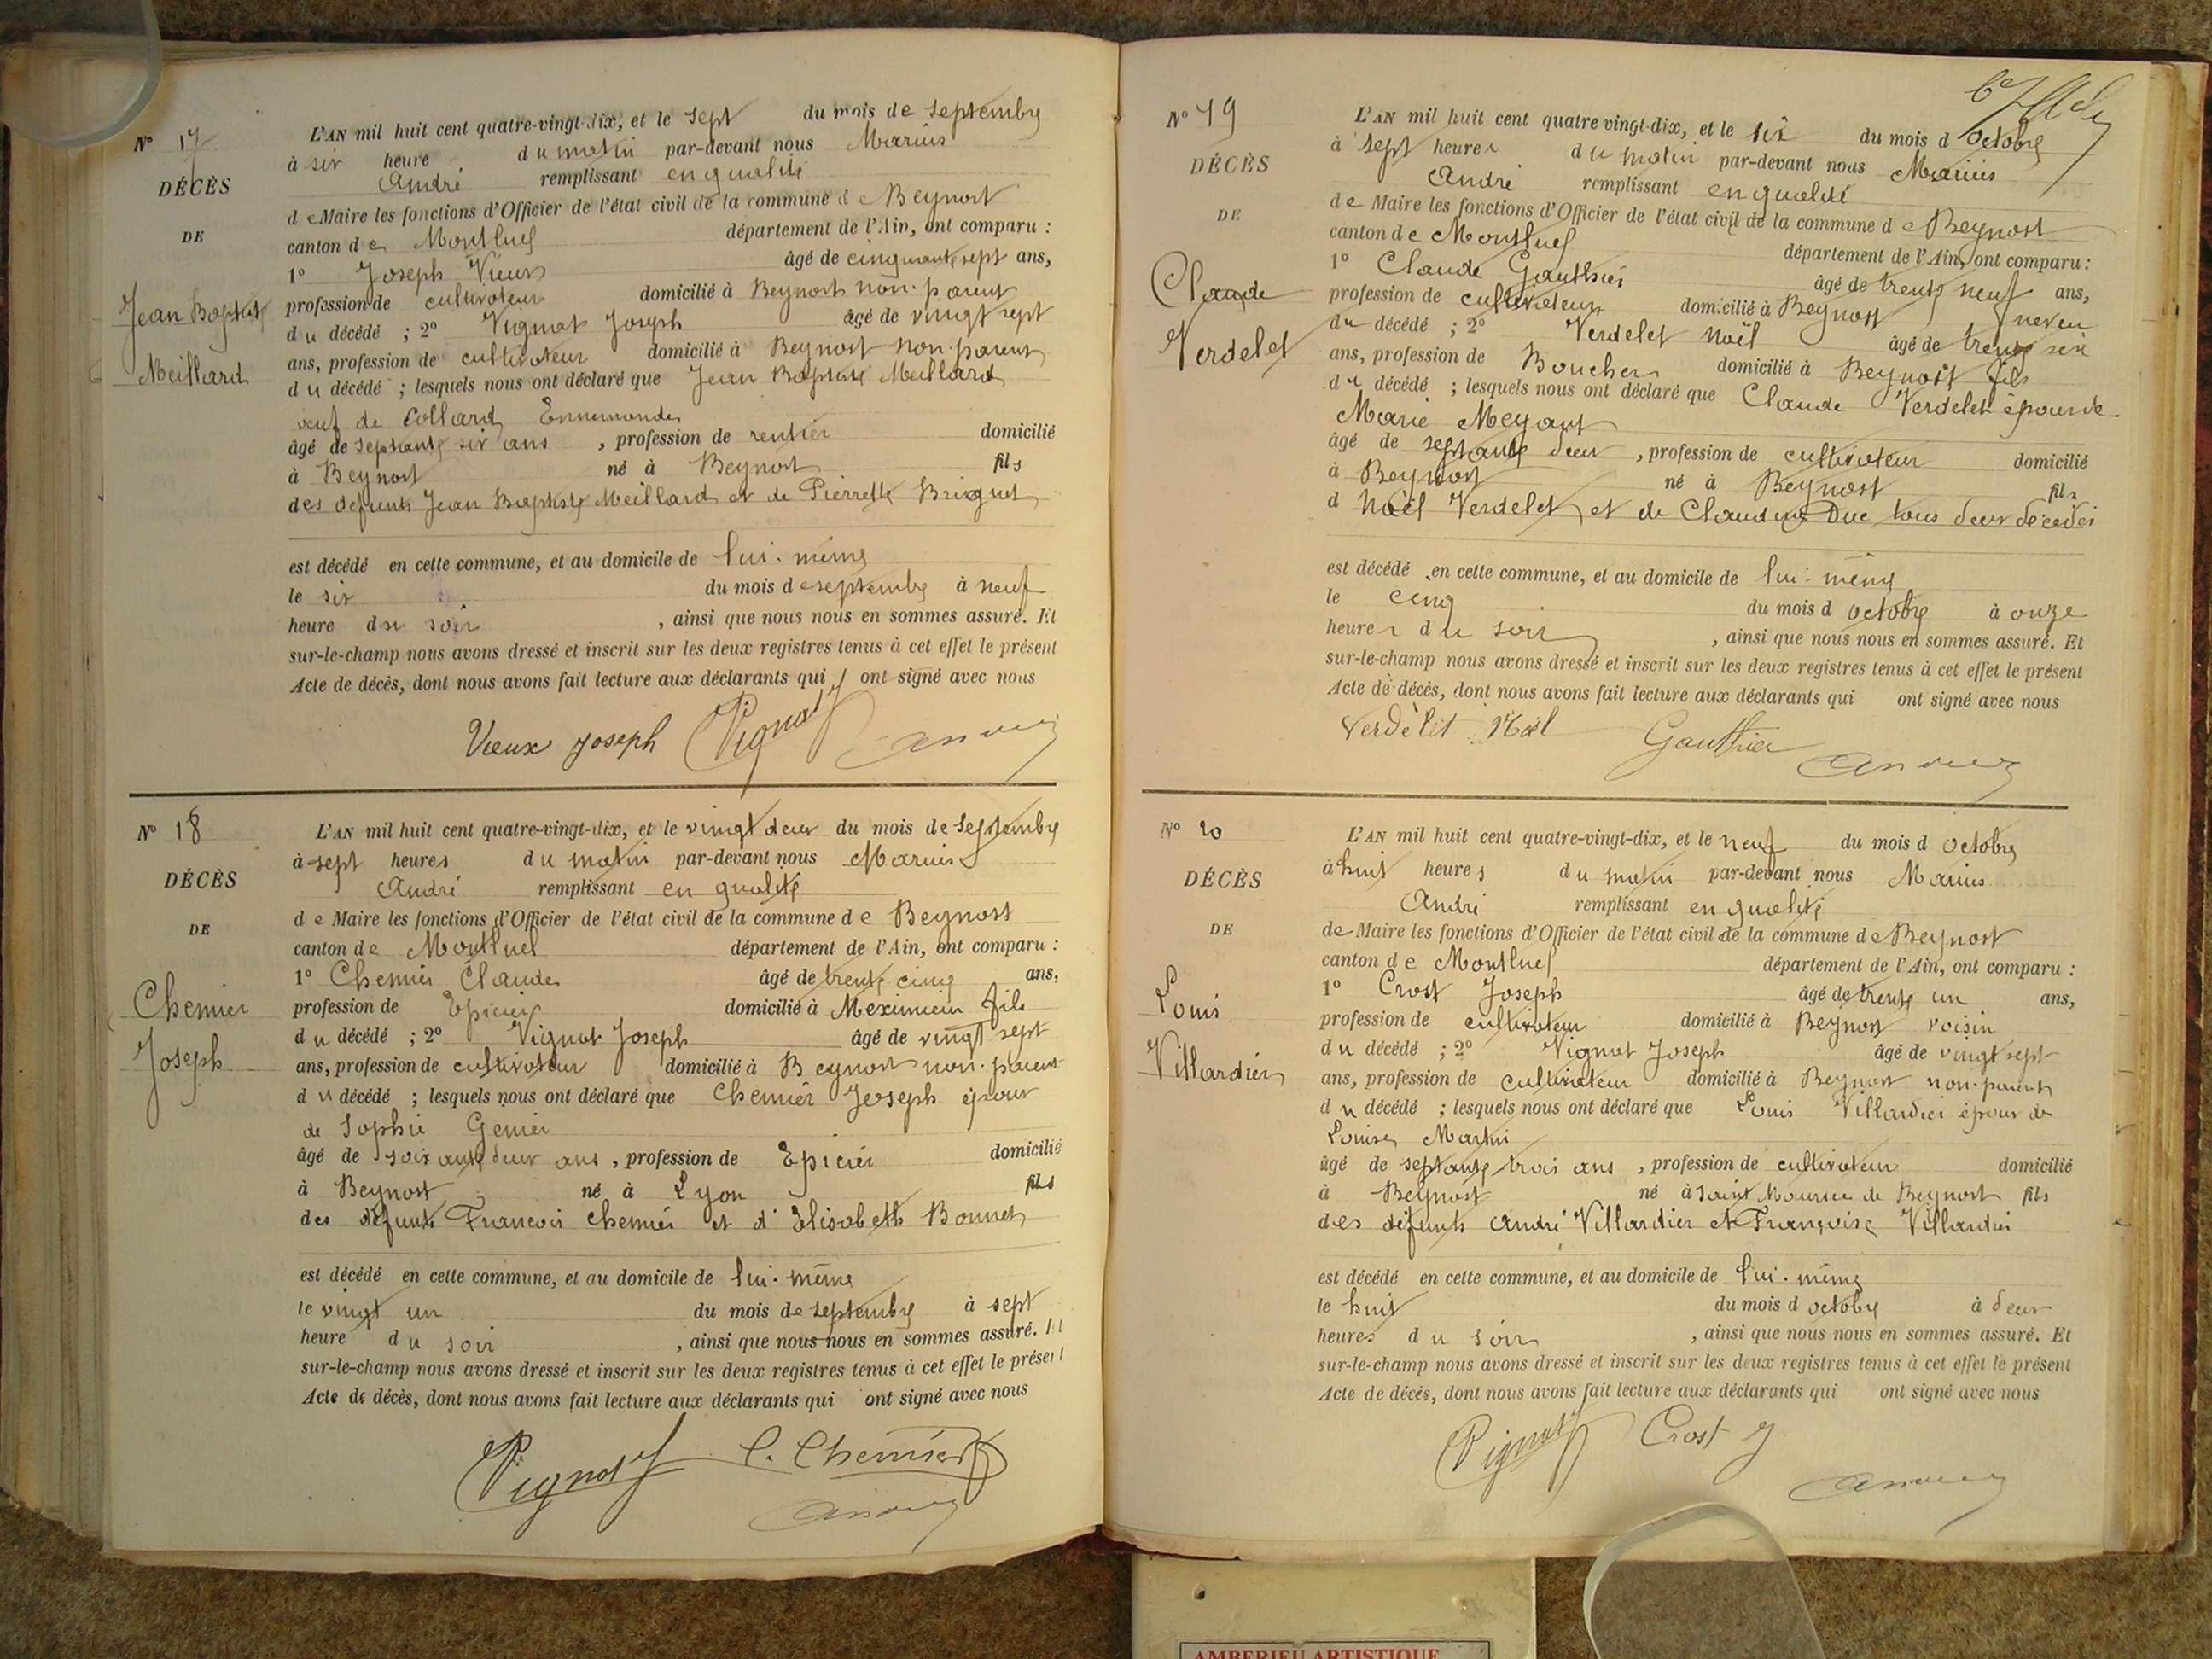 N° 17
DÉCÈS
DE
Jean Baptiste
Meillard
L'AN mil huit cent quatre-vingt-dix, et le sept du mois de septembre
à six heure du matin par-devant nous Marius
André remplissant en qualité
de Maire les fonctions d'Officier de l'état civil de la commune de Beynost
canton de Montluel département de l'Ain, ont comparu :
1° Joseph Vieux âgé de cinquante sept ans,
profession de cultivateur domicilié à Beynost non parent
du décédé ; 2° Vignat Joseph âgé de vingt sept
ans, profession de cultivateur domicilié à Beynost non parent
du décédé ; lesquels nous ont déclaré que Jean Baptiste Meillard
veuf de Collard Ennemonde
âgé de septante six ans , profession de rentier domicilié
à Beynost né à Beynost fils
des défunts Jean Baptiste Meillard et de Pierrette Briquet
est décédé en cette commune, et au domicile de lui-même
le six du mois de septembre à neuf
heure du soir , ainsi que nous nous en sommes assuré. Et
sur-le-champ nous avons dressé et inscrit sur les deux registres tenus à cet effet le présent
Acte de décès, dont nous avons fait lecture aux déclarants qui ont signé avec nous
Vieux Joseph Vignat J André
N° 18
DÉCÈS
DE
Chemier
Joseph
L'AN mil huit cent quatre-vingt-dix, et le vingt deux du mois de septembre
à sept heures du matin par-devant nous Marius
André remplissant en qualité
de Maire les fonctions d'Officier de l'état civil de la commune de Beynost
canton de Montluel département de l'Ain, ont comparu :
1° Chemier Claude âgé de trente cinq ans,
profession de Epicier domicilié à Meximieux fils
du décédé ; 2° Vignat Joseph âgé de vingt sept
ans, profession de cultivateur domicilié à Beynost non-parent
du décédé ; lesquels nous ont déclaré que Chemier Joseph époux
de Sophie Genier
âgé de soixante deux ans , profession de Epicier domicilié
à Beynost né à Lyon fils
des défunts Francois Chemier et d'Elisabeth Bonnet
est décédé en cette commune, et au domicile de lui-même
le vingt un du mois de septembre à sept
heure du soir , ainsi que nous nous en sommes assuré. Et
sur-le-champ nous avons dressé et inscrit sur les deux registres tenus à cet effet le présent
Acte de décès, dont nous avons fait lecture aux déclarants qui ont signé avec nous
Vignat J C. Chemier
André
N° 19
DÉCÈS
DE
Claude
Verdelet
L'AN mil huit cent quatre vingt-dix, et le six du mois d octobre
à sept heures du matin par-devant nous Marius
André remplissant en qualité
de Maire les fonctions d'Officier de l'état civil de la commune de Beynost
canton de Montluel département de l'Ain, ont comparu :
1° Claude Gauthier âgé de trente neuf ans,
profession de cultivateur domicilié à Beynost neveu
du décédé ; 2° Verdelet Noël âgé de trente six
ans, profession de Boucher domicilié à Beynost fils
du décédé ; lesquels nous ont déclaré que Claude Verdelet époux de
Marie Meyant
âgé de septante deux , profession de cultivateur domicilié
à Beynost né à Beynost fils
d Noël Verdelet et de Claudine Duc tous deux décédés
est décédé en cette commune, et au domicile de lui-même
le cinq du mois d octobre à onze
heures du soir , ainsi que nous nous en sommes assuré. Et
sur-le-champ nous avons dressé et inscrit sur les deux registres tenus à cet effet le présent
Acte de décès, dont nous avons fait lecture aux déclarants qui ont signé avec nous
Verdèlet Noël Gauthier André
N° 20
DÉCÈS
DE
Louis
Villardier
L'AN mil huit cent quatre-vingt-dix, et le neuf du mois d octobre
à huit heures du matin par-devant nous Marius
André remplissant en qualité
de Maire les fonctions d'Officier de l'état civil de la commune de Beynost
canton de Montluel département de l'Ain, ont comparu :
1° Crost Joseph âgé de trente un ans,
profession de cultivateur domicilié à Beynost voisin
du décédé ; 2° Vignat Joseph âgé de vingt sept
ans, profession de cultivateur domicilié à Beynost non-parent
du décédé ; lesquels nous ont déclaré que Louis Villardier époux de
Louise Martin
âgé de septante trois ans , profession de cultivateur domicilié
à Beynost né à Saint Maurice de Beynost fils
des défunts André Villardier et Françoise Villardier
est décédé en cette commune, et au domicile de lui-même
le huit du mois d octobre à deux
heures du soir , ainsi que nous nous en sommes assuré. Et
sur-le-champ nous avons dressé et inscrit sur les deux registres tenus à cet effet le présent
Acte de décès, dont nous avons fait lecture aux déclarants qui ont signé avec nous
Vignat J Crost J
André
AMBERIEU ARTISTIQUE